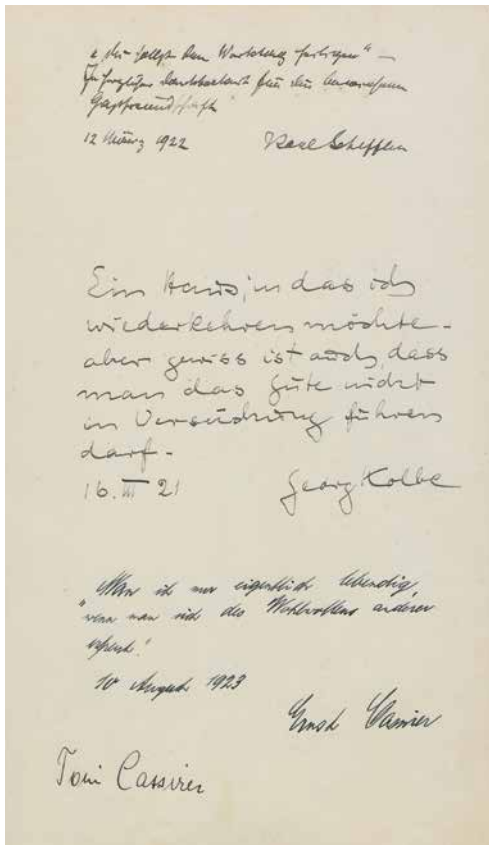 „Du sollst den Werktag heiligen" —
In herzlicher Dankbarkeit für die
Gastfreundschaft
12 März 1922 Karl Scheffler
Ein Haus, in das ich
wiederkehren möchte -
aber gewiss ist auch, dass
man das Gute nicht
in Versuchung führen
darf -
16. III 21 Georg Kolbe
„Man ist nur eigentlich lebendig,
wenn man sich des Wohlwollens anderer
erfreut."
10 August 1923
Ernst Cassirer
Toni Cassirer